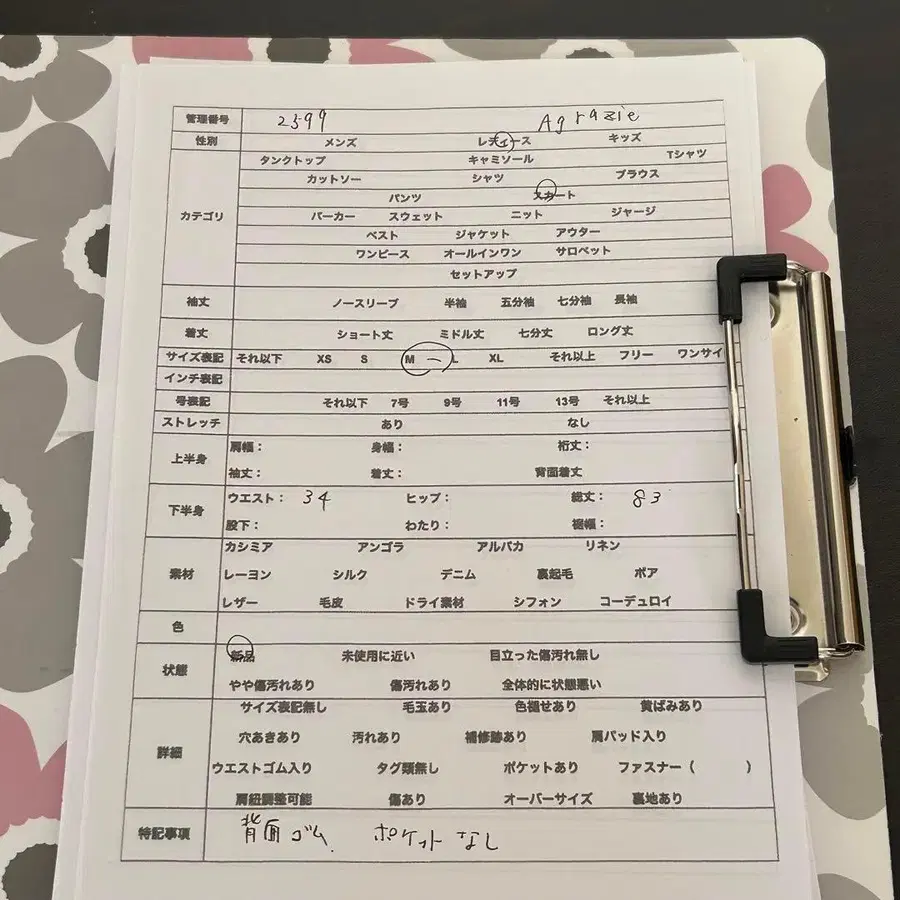 管理番号 2599 Agrazie
性別 メンズ レディース キッズ
タンクトップ キャミソール Tシャツ
カットソー シャツ ブラウス
パンツ スカート
カテゴリ パーカー スウェット ニット ジャージ
ベスト ジャケット アウター
ワンピース オールインワン サロペット
セットアップ
袖丈 ノースリーブ 半袖 五分袖 七分袖 長袖
着丈 ショート丈 ミドル丈 七分丈 ロング丈
サイズ表記 それ以下 XS S M L XL それ以上 フリー ワンサイ
インチ表記
号表記 それ以下 7号 9号 11号 13号 それ以上
ストレッチ あり なし
上半身 肩幅: 身幅: 裄丈:
袖丈: 着丈: 背面着丈
下半身 ウエスト: 34 ヒップ: 総丈: 83
股下: わたり: 裾幅:
カシミア アンゴラ アルパカ リネン
素材 レーヨン シルク デニム 裏起毛 ボア
レザー 毛皮 ドライ素材 シフォン コーデュロイ
色
状態 新品 未使用に近い 目立った傷汚れ無し
やや傷汚れあり 傷汚れあり 全体的に状態悪い
サイズ表記無し 毛玉あり 色褪せあり 黄ばみあり
穴あきあり 汚れあり 補修跡あり 肩パッド入り
詳細 ウエストゴム入り タグ類無し ポケットあり ファスナー( )
肩紐調整可能 傷あり オーバーサイズ 裏地あり
特記事項 背面ゴム. ポケットなし